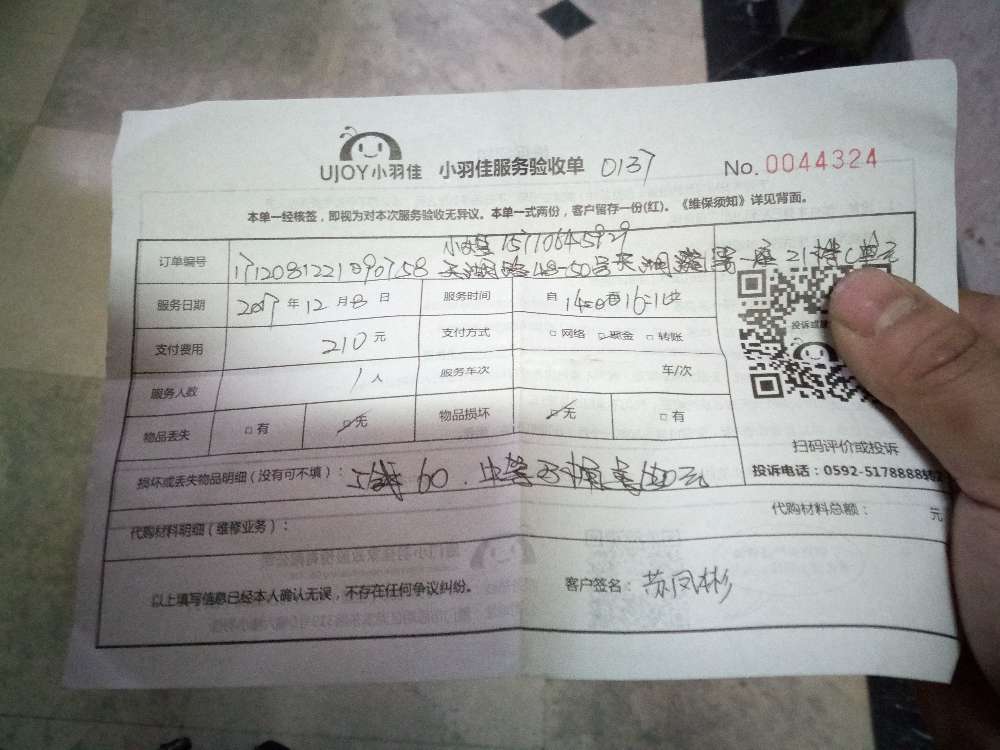 UJOY小羽佳 小羽佳服务验收单 0137 No.0044324
本单一经核签，即视为对本次服务验收无异议。本单一式两份，客户留存一份(红)。《维保须知》详见背面。
订单编号 1712081221890758
服务日期 2017 年 12 月 8 日 服务时间 自
支付费用 210 元 支付方式 □ 网络 □ 现金 □ 转账
服务人数 1 人 服务车次 车/次
物品丢失 □ 有 □ 无 物品损坏 □ 无 □ 有
扫码评价或投诉
投诉电话：0592-5178888
损坏或丢失物品明细（没有可不填）： 60
代购材料明细（维修业务）： 代购材料总额： 元
以上填写信息已经本人确认无误，不存在任何争议纠纷。 客户签名：苏凤彬